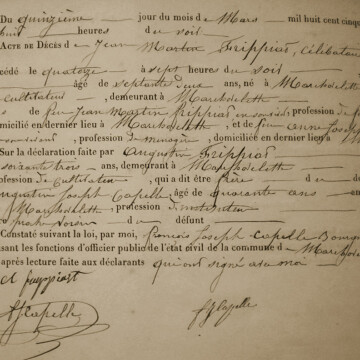 Du quinzième jour du mois de Mars mil huit cent cinq
huit heures du soir
ACTE DE DÉCÈS de Jean Martin Frippiat, célibatai
cédé le quatorze à sept heures du soir
âgé de septante deux ans, né à Marchdelott
cultivateur, demeurant à Marchdelott
de feu Jean Martin Frippiat en son vivant, profession de
domicilié en dernier lieu à Marchdelott, et de feue anne Joseph
, profession de ménagère, domiciliée en dernier lieu à
Sur la déclaration faite par Augustin Frippiat
soixante trois ans, demeurant à Marchdelott
ofession de Cultivateur, qui a dit être frère d
ugustin Joseph Capelle, âgé de quarante ans
Marchdelott, profession d'instituteur
voisin du défunt
Constaté suivant la loi, par moi, François Joseph Capelle Bourg
isant les fonctions d'officier public de l'état civil de la commune de Marchde
après lecture faite aux déclarants qui ont signé avec moi
A frippiat
AJ Capelle FJ Capelle